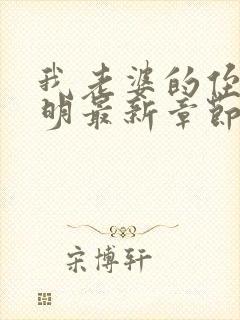 我老婆的任
明最新章節
宋博轩